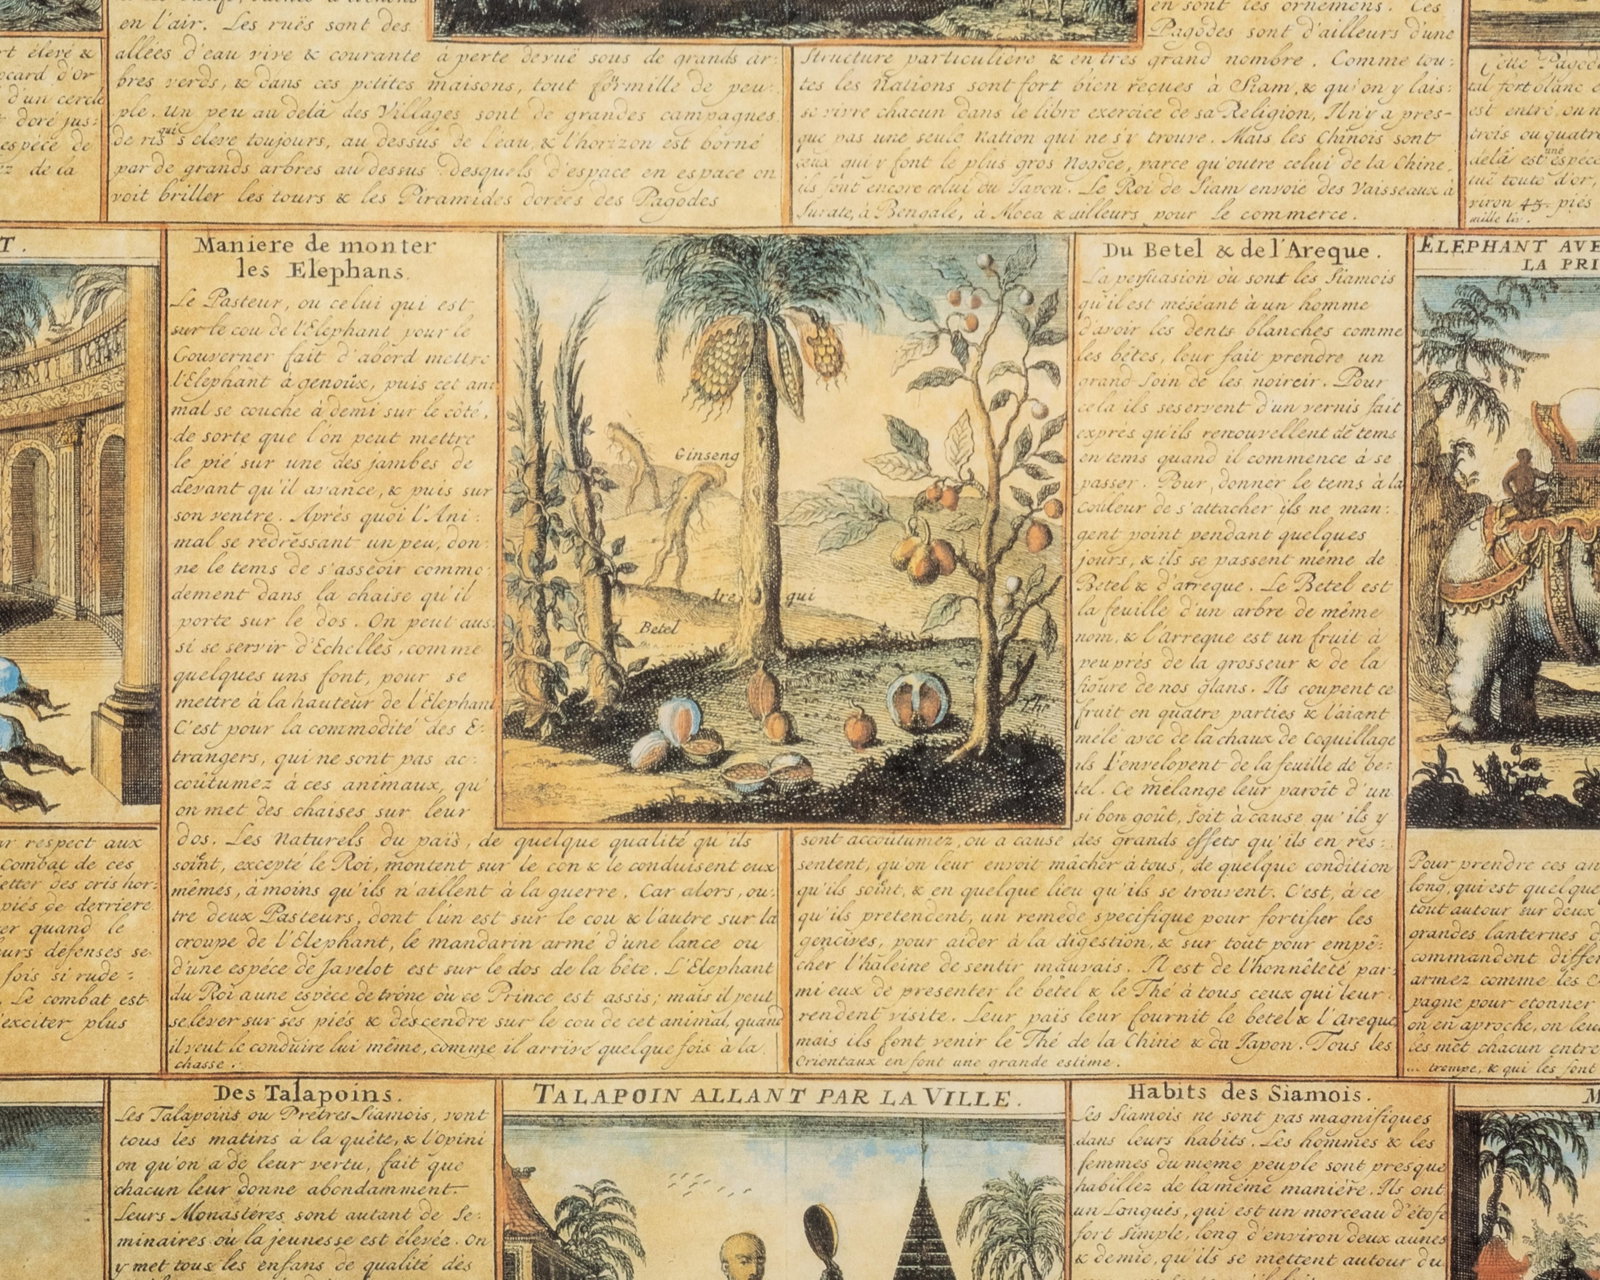 en l'air. Les ruës sont des
allées d'eau vive & courante à perte de vuë sous de grands ar:
bres verds, & dans ces petites maisons, tout formille de peu:
ple. Un peu au delà des Villages sont de grandes campagnes
de ris qui s'eleve toujours, au dessus de l'eau, & l'horizon est borné
par de grands arbres au dessus desquels d'espace en espace on
voit briller les tours & les Piramides dorées des Pagodes
en sont les ornemens. Ces
Pagodes sont d'ailleurs d'une
Structure particuliere & en tres grand nombre. Comme tou:
tes les Nations sont fort bien reçues à Siam, & qu'on y lais:
se vivre chacun dans le libre exercice de sa Religion, Il n'y a pres-
que pas une seule Nation qui ne s'y trouve. Mais les Chinois sont
ceux qui y font le plus gros Negoce, parce qu'outre celui de la Chine,
ils font encore celui du Japon. Le Roi de Siam envoie des Vaisseaux à
Surate, à Bengale, à Moca & ailleurs pour le commerce.
rt élevé &
ocard d'or
d'un cercle
doré jus:
espece de
de la
Cette Pagode
tal fort blanc
est entré, on
trois ou quatre
delà est une espéce
tuë toute d'or,
viron 45. piés
T.
Maniere de monter
les Elephans.
Le Pasteur, ou celui qui est
sur le cou de l'Elephant pour le
Gouverner fait d'abord mettre
l'Elephant à genoüx, puis cet ani
mal se couche à demi sur le côté,
de sorte que l'on peut mettre
le pié sur une des jambes de
devant qu'il avance, & puis sur
son ventre. Après quoi l'Ani:
mal se redressant un peu, don:
ne le tems de s'asseoir commo:
dement dans la chaise qu'il
porte sur le dos. On peut aus:
si se servir d'Echelles, comme
quelques uns font, pour se
mettre à la hauteur de l'Elephant
C'est pour la commodité des E-
trangers, qui ne sont pas ac:
coûtumez à ces animaux, qu'
on met des chaises sur leur
dos. Les Naturels du païs, de quelque qualité qu'ils
soint, excepté le Roi, montent sur le cou & le conduisent eux
mêmes, à moins qu'ils n'aillent à la guerre. Car alors, ou:
tre deux Pasteurs, dont l'un est sur le cou & l'autre sur la
croupe de l'Elephant, le mandarin armé d'une lance ou
d'une espéce de Javelot est sur le dos de la bête. L'Elephant
du Roi a une espéce de trône où ce Prince est assis; mais il peut
se lever sur ses piés & descendre sur le cou de cet animal, quand
il veut le conduire lui même, comme il arrive quelquefois à la
chasse.
Ginseng
Are
qui
Betel
Thé
Du Betel & de l'Areque.
La persuasion où sont les Siamois
qu'il est méséant à un homme
d'avoir les dents blanches comme
les bêtes, leur fait prendre un
grand soin de les noircir. Pour
cela ils se servent d'un vernis fait
exprés qu'ils renouvellent de tems
en tems quand il commence à se
passer. Pour donner le tems à la
couleur de s'attacher ils ne man:
gent point pendant quelques
jours, & ils se passent même de
Betel & d'arreque. Le Betel est
la feuille d'un arbre de même
nom, & l'arreque est un fruit à
peu prés de la grosseur & de la
figure de nos glans. Ils coupent ce
fruit en quatre parties & l'aiant
mêlé avec de la chaux de Coquillage
ils l'envelopent de la feuille de be:
tel. Ce mélange leur paroît d'un
si bon goût, soit à cause qu'ils y
sont accoûtumez, ou à cause des grands effets qu'ils en res:
sentent, qu'on leur envoit mâcher à tous, de quelque condition
qu'ils soint, & en quelque lieu qu'ils se trouvent. C'est, à ce
qu'ils pretendent, un remède specifique pour fortifier les
gencives, pour aider à la digestion, & sur tout pour empê:
cher l'haleine de sentir mauvais. Il est de l'honnêteté par:
mi eux de presenter le betel & le Thé à tous ceux qui leur
rendent visite. Leur païs leur fournit le betel & l'areque,
mais ils font venir le Thé de la Chine & du Japon. Tous les
Orientaux en font une grande estime.
ELEPHANT AVE
LA PRI
ar respect aux
combat de ces
etter des cris hor:
piés de derriere
er quand le
urs défenses se
fois si rude:
Le combat est
'exciter plus
Pour prendre ces an
long, qui est quelque
tout autour sur deux
grandes lanternes
commandent differ
armez comme les
pagne pour etonner
on en aproche, on leu
les met chacun entre
trompe, & qui les font
Des Talapoins.
Les Talapoins ou Prêtres Siamois, vont
tous les matins à la quête, & l'opini
on qu'on a de leur vertu, fait que
chacun leur donne abondamment.
Leurs Monastères sont autant de Se:
minaires où la jeunesse est élevée. On
y met tous les enfans de qualité dés
TALAPOIN ALLANT PAR LA VILLE.
Habits des Siamois.
Les Siamois ne sont pas magnifiques
dans leurs habits. Les hommes & les
femmes du meme peuple sont presque
habillez de la même manière. Ils ont
un Longuis, qui est un morceau d'étofe
fort simple, long d'environ deux aunes
& demie, qu'ils se mettent autour du
M